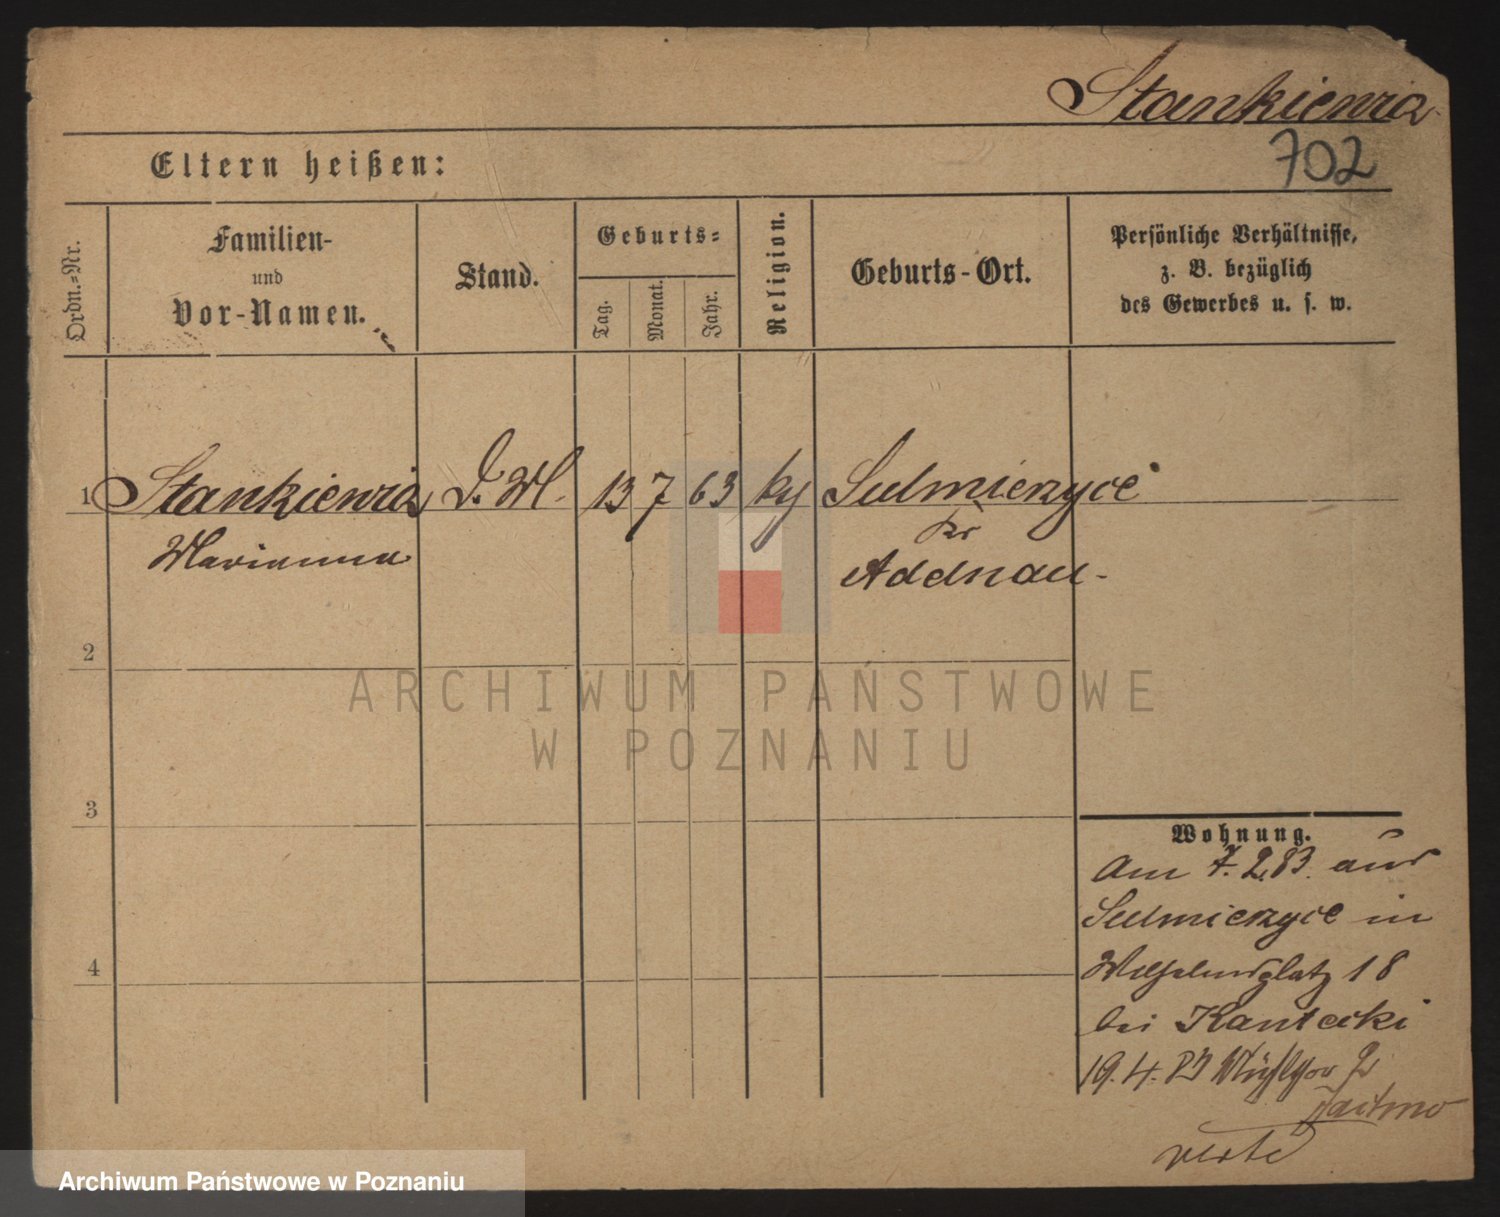 Stankiewicz
702
Eltern heißen:
Ordn.-Nr.
Familien-
und
Vor-Namen.
Stand.
Geburts-
Tag.
Monat.
Jahr.
Religion.
Geburts-Ort.
Persönliche Verhältnisse,
z. B. bezüglich
des Gewerbes u. s. w.
1 Stankiewicz D. M. 13 7 63 kg Sulmierzyce
Marianna Kr
Adelnau-
2
3
4
Wohnung.
Am 7.2.83. aus
Sulmierzyce in
Wilhelmsplatz 18
bei Kantecki
19. 4. 83
verte
ARCHIWUM PAŃSTWOWE
W POZNANIU
Archiwum Państwowe w Poznaniu